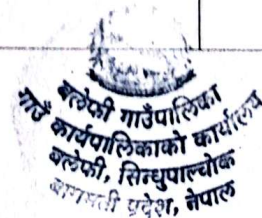 बलेफी गाउँपालिका
गाउँ कार्यपालिकाको कार्यालय
बलेफी, सिन्धुपाल्चोक
बागमती प्रदेश, नेपाल